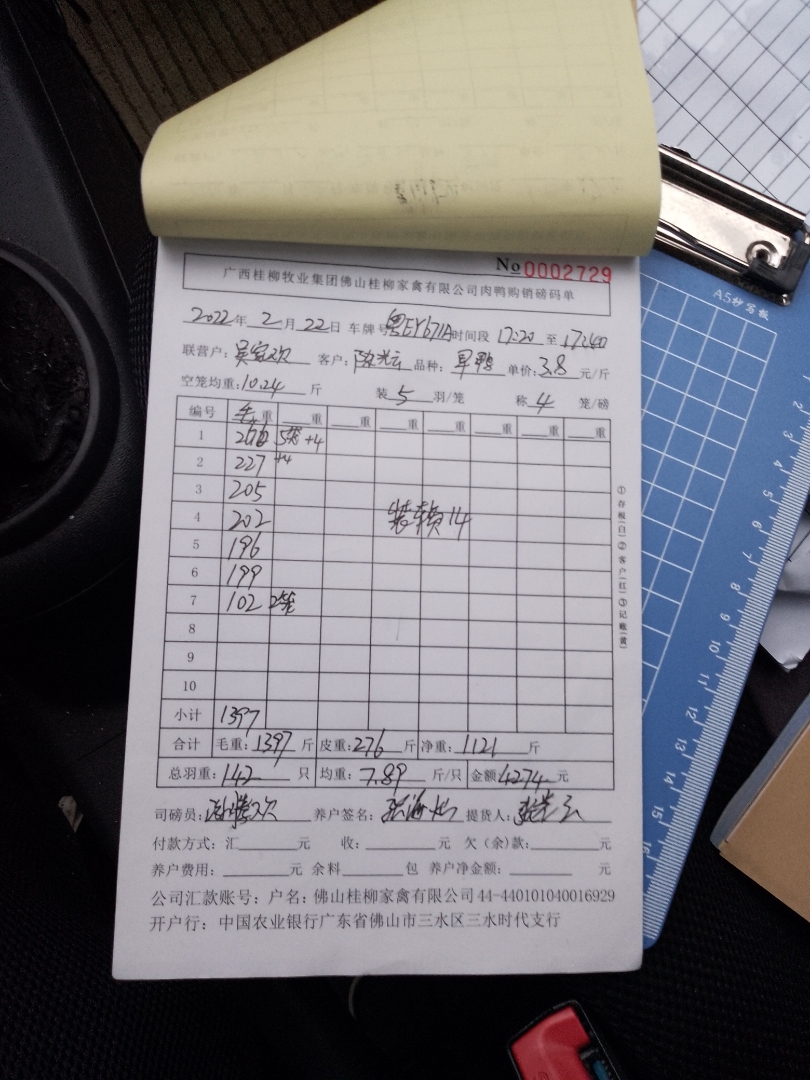 No 0002729
广西桂柳牧业集团佛山桂柳家禽有限公司肉鸭购销磅码单
2022年 2月 22日 车牌号粤EY671A 时间段 17:20 至 17:40
联营户: 客户: 品种: 单价: 3.8 元/斤
空笼均重: 10.24 斤 装 5 羽/笼 称 4 笼/磅
编号 毛重 重 重 重 重 重 重 重
1 5笼 +4
2 227 +4
3 205
4 202 装 14
5 196
6 199
7 102 2笼
8
9
10
小计 1397
合计 毛重: 1397 斤 皮重: 276 斤 净重: 1121 斤
总羽重: 142 只 均重: 7.89 斤/只 金额: 4274 元
司磅员: 养户签名: 提货人:
付款方式: 汇 元 收: 元 欠(余)款: 元
养户费用: 元 余料 包 养户净金额: 元
公司汇款账号: 户名: 佛山桂柳家禽有限公司 44-440101040016929
开户行: 中国农业银行广东省佛山市三水区三水时代支行
①存根(白)②客户(红)③记账(黄)
A5抄写板
2
3
4
5
6
7
8
9
10
11
12
13
14
15
16